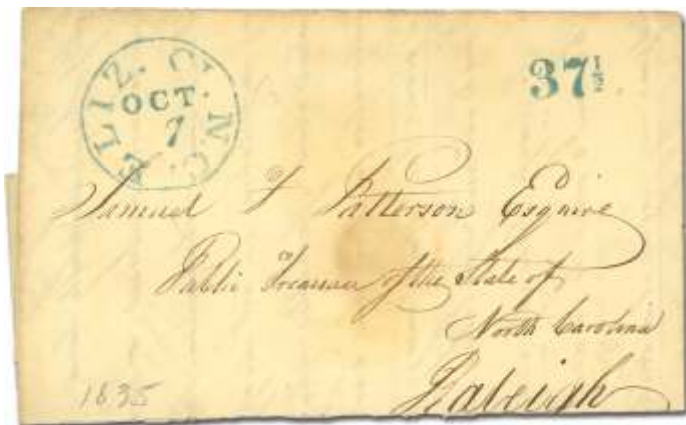 ELIZ. CY. N.C.
OCT.
7
37½
Samuel F Patterson Esquire
Public Treasurer of the State of
North Carolina
Raleigh
1835